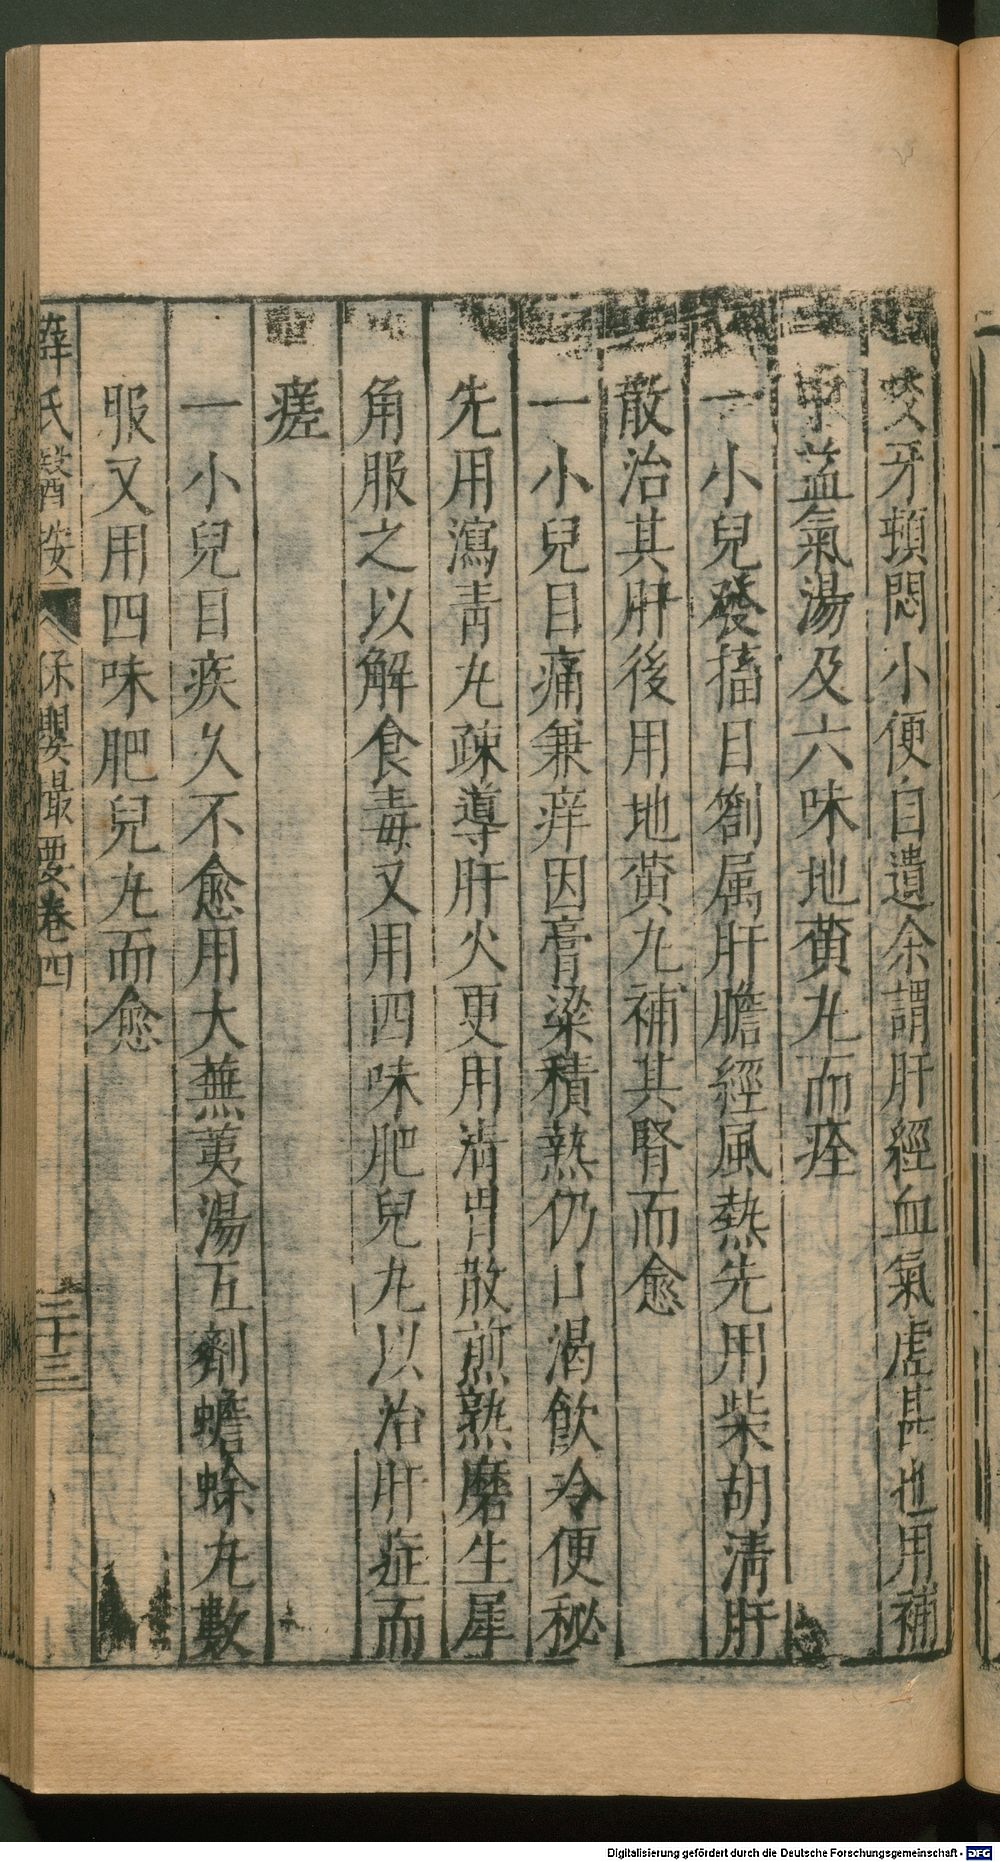 咬牙頓悶小便自遺余謂肝經血氣虛甚也用補
中益氣湯及六味地黄丸而痊
一小兒發搐目劄属肝膽經風熱先用柴胡清肝
散治其肝後用地黄丸補其腎而愈
一小兒目痛兼痒因膏粱積熱仍口渴飲冷便秘
先用瀉青丸疎導肝火更用清胃散煎熟磨生犀
角服之以解食毒又用四味肥兒丸以治肝症而
瘥
一小兒目疾久不愈用大蕪荑湯五劑蟾蜍丸數
服又用四味肥兒丸而愈
薛氏醫按 保嬰撮要卷四 二十三
Digitalisierung gefördert durch die Deutsche Forschungsgemeinschaft - DFG